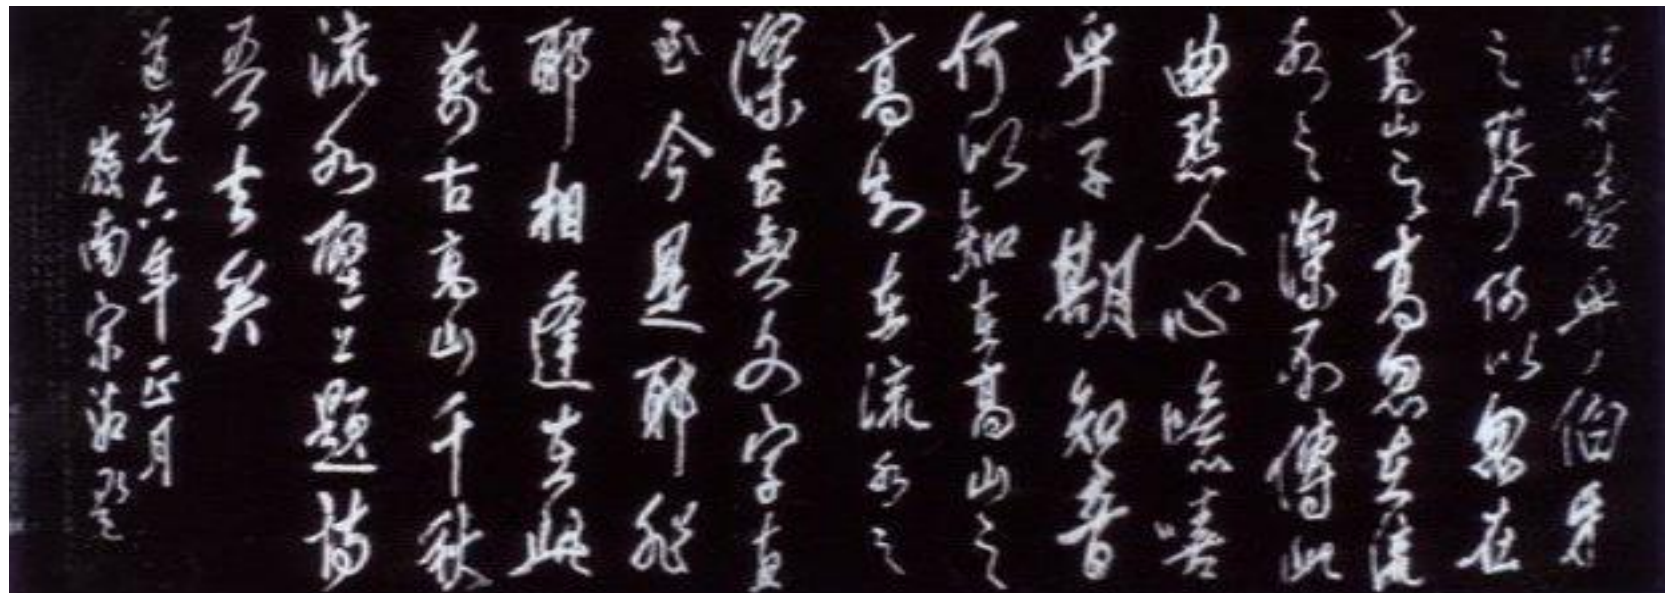 噫嘻乎伯牙
之琴何以忽在
高山之高忽在流
水之深不傳此
曲愁人心噫嘻
乎子期知音
何以知在高山之
高知在流水之
深古無文字直
至今是耶非
耶相逢在此
萬古高山千秋
流水壁上題詩
吾去矣
道光六年正月
嶺南宋湘